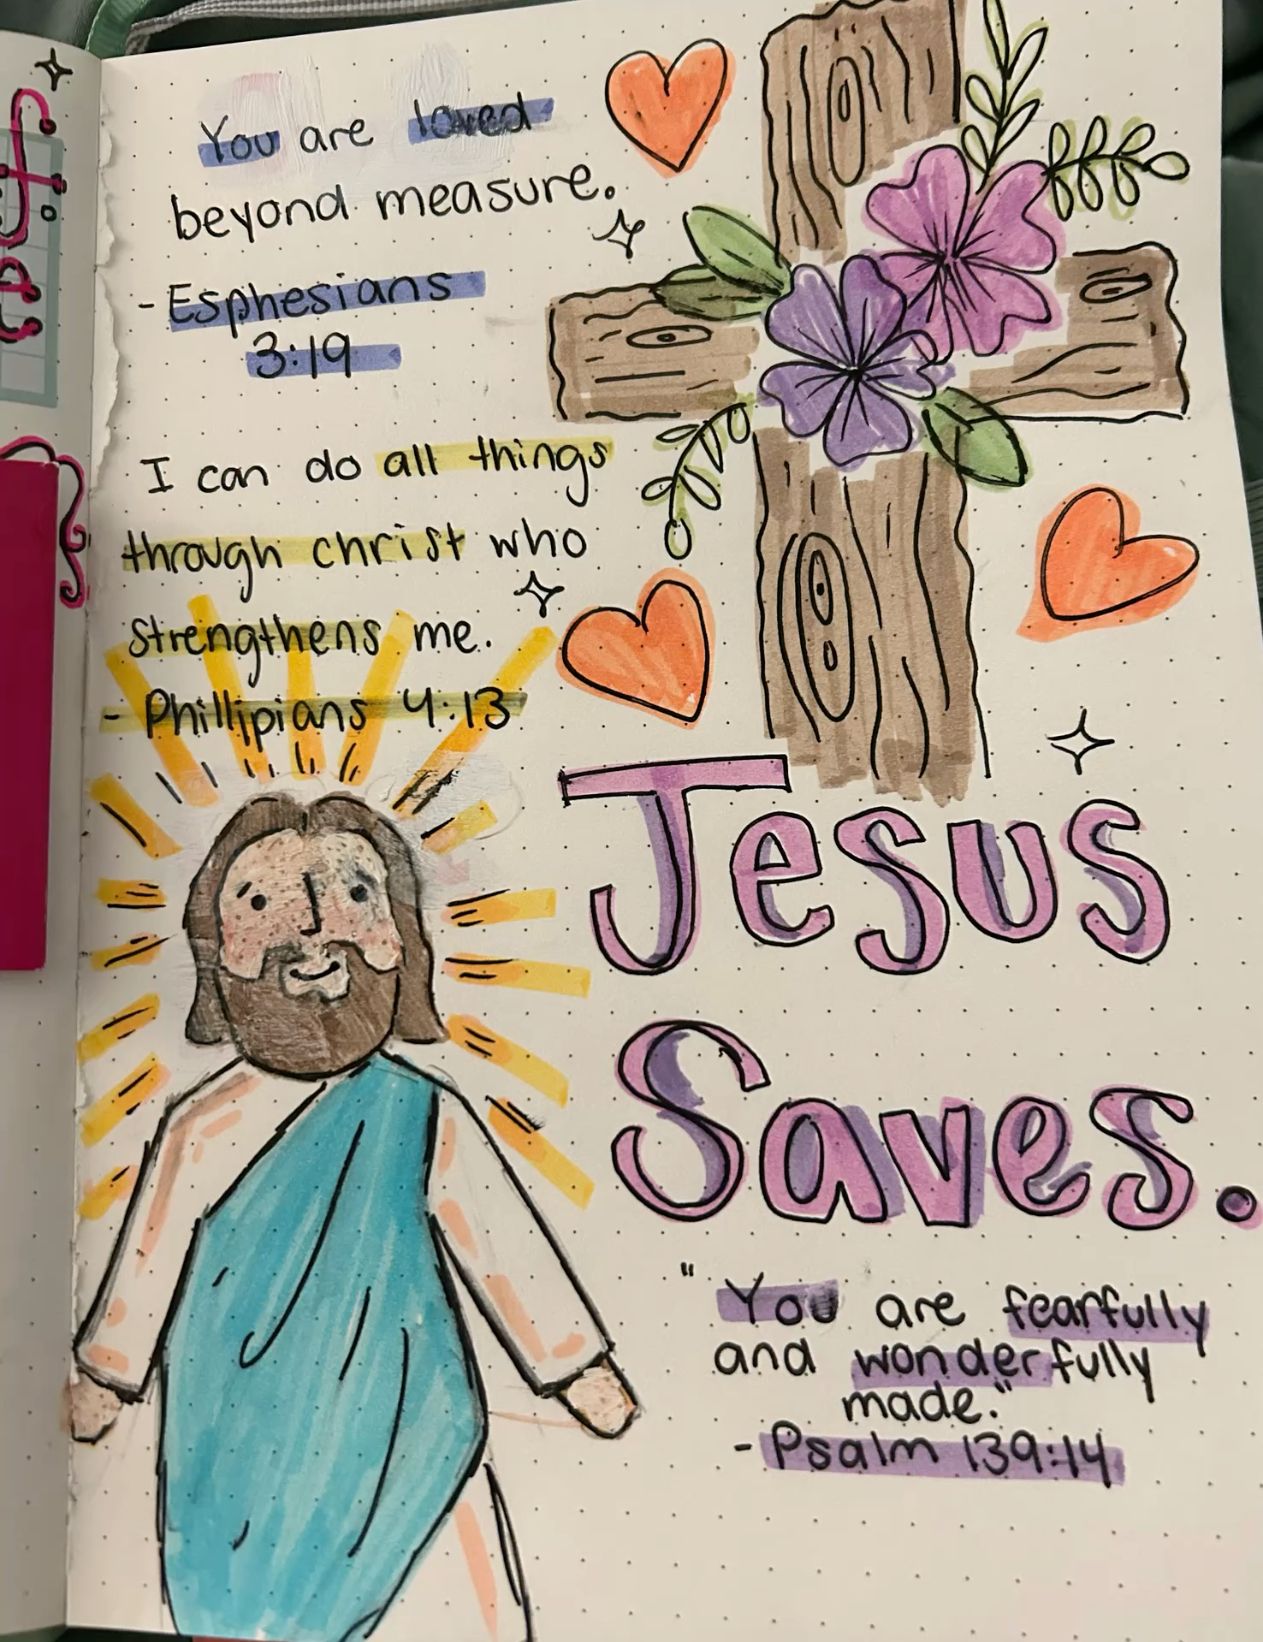 You are loved
beyond measure.
- Esphesians
3:19
I can do all things
through christ who
strengthens me.
- Phillipians 4:13
Jesus
Saves.
"You are fearfully
and wonderfully
made."
- Psalm 139:14